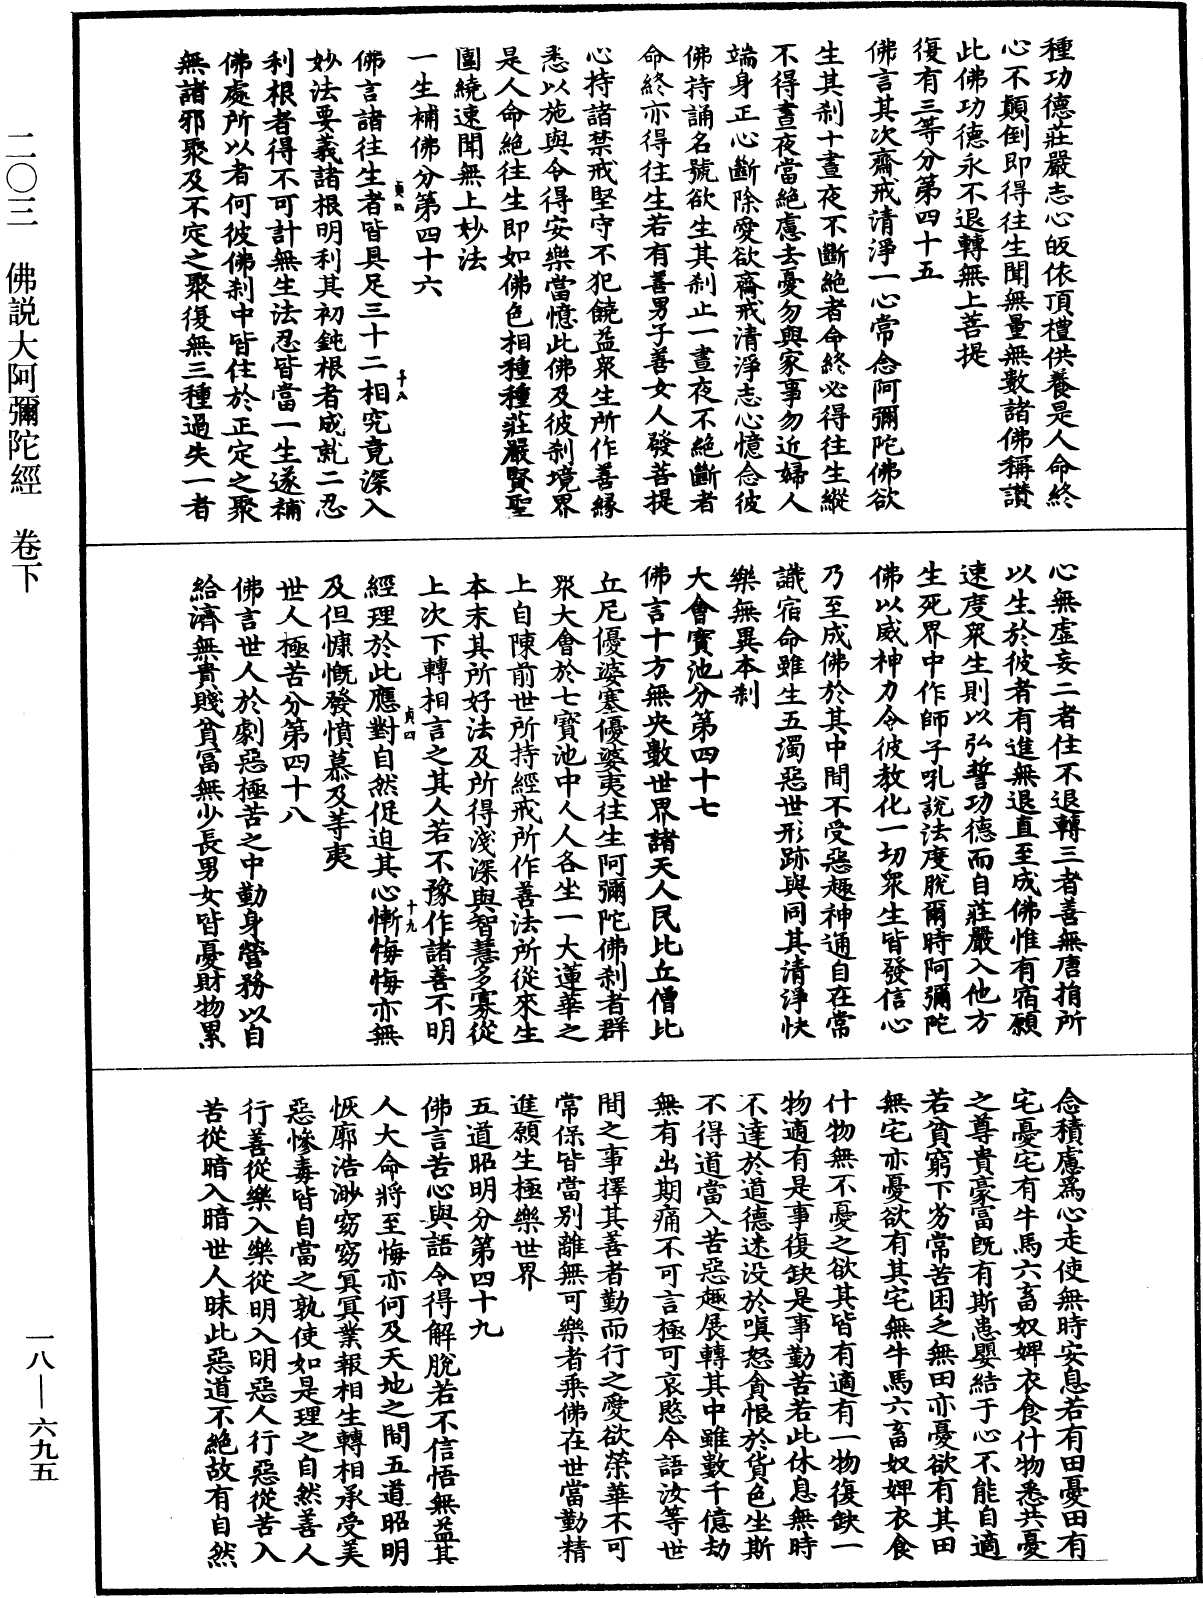 種功德莊嚴志心皈依頂禮供養是人命終
心不顛倒即得往生聞無量無數諸佛稱讚
此佛功德永不退轉無上菩提
復有三等分第四十五
佛言其次齋戒清淨一心常念阿彌陀佛欲
生其刹十晝夜不斷絕者命終必得往生縱
不得晝夜當絕慮去憂勿與家事勿近婦人
端身正心斷除愛欲齋戒清淨志心憶念彼
佛持誦名號欲生其刹止一晝夜不絕斷者
命終亦得往生若有善男子善女人發菩提
心持諸禁戒堅守不犯饒益眾生所作善緣
悉以施與令得安樂當憶此佛及彼刹境界
是人命絕往生即如佛色相種種莊嚴賢聖
圍繞速聞無上妙法
一生補佛分第四十六
佛言諸往生者皆具足三十二相究竟深入
妙法要義諸根明利其初鈍根者成就二忍
利根者得不可計無生法忍皆當一生遂補
佛處所以者何彼佛刹中皆住於正定之聚
無諸邪聚及不定之聚復無三種過失一者
貞四
十八
心無虛妄二者住不退轉三者善無唐捐所
以生於彼者有進無退直至成佛惟有宿願
速度眾生則以弘誓功德而自莊嚴入他方
生死界中作師子吼說法度脫爾時阿彌陀
佛以威神力令彼教化一切眾生皆發信心
乃至成佛於其中間不受惡趣神通自在常
識宿命雖生五濁惡世形跡與同其清淨快
樂無異本刹
大會寶池分第四十七
佛言十方無央數世界諸天人民比丘僧比
丘尼優婆塞優婆夷往生阿彌陀佛刹者群
眾大會於七寶池中人人各坐一大蓮華之
上自陳前世所持經戒所作善法所從來生
本末其所好法及所得淺深與智慧多寡從
上次下轉相言之其人若不豫作諸善不明
經理於此應對自然促迫其心慚悔悔亦無
及但慷慨發憤慕及等夷
世人極苦分第四十八
佛言世人於劇惡極苦之中勤身營務以自
給濟無貴賤貧富無少長男女皆憂財物累
貞四
十九
念積慮為心走使無時安息若有田憂田有
宅憂宅有牛馬六畜奴婢衣食什物悉共憂
之尊貴豪富既有斯患嬰結于心不能自適
若貧窮下劣常苦困乏無田亦憂欲有其田
無宅亦憂欲有其宅無牛馬六畜奴婢衣食
什物無不憂之欲其皆有適有一物復缺一
物適有是事復缺是事勤苦若此休息無時
不達於道德迷没於嗔怒貪恨於貨色坐斯
不得道當入苦惡趣展轉其中雖數千億劫
無有出期痛不可言極可哀愍今語汝等世
間之事擇其善者勤而行之愛欲榮華不可
常保皆當別離無可樂者乘佛在世當勤精
進願生極樂世界
五道昭明分第四十九
佛言苦心與語令得解脫若不信悟無益其
人大命將至悔亦何及天地之間五道昭明
恢廓浩渺窈窈冥冥業報相生轉相承受美
惡慘毒皆自當之孰使如是理之自然善人
行善從樂入樂從明入明惡人行惡從苦入
苦從暗入暗世人昧此惡道不絕故有自然
二〇三　佛説大阿彌陀經　卷下
一八—六九五